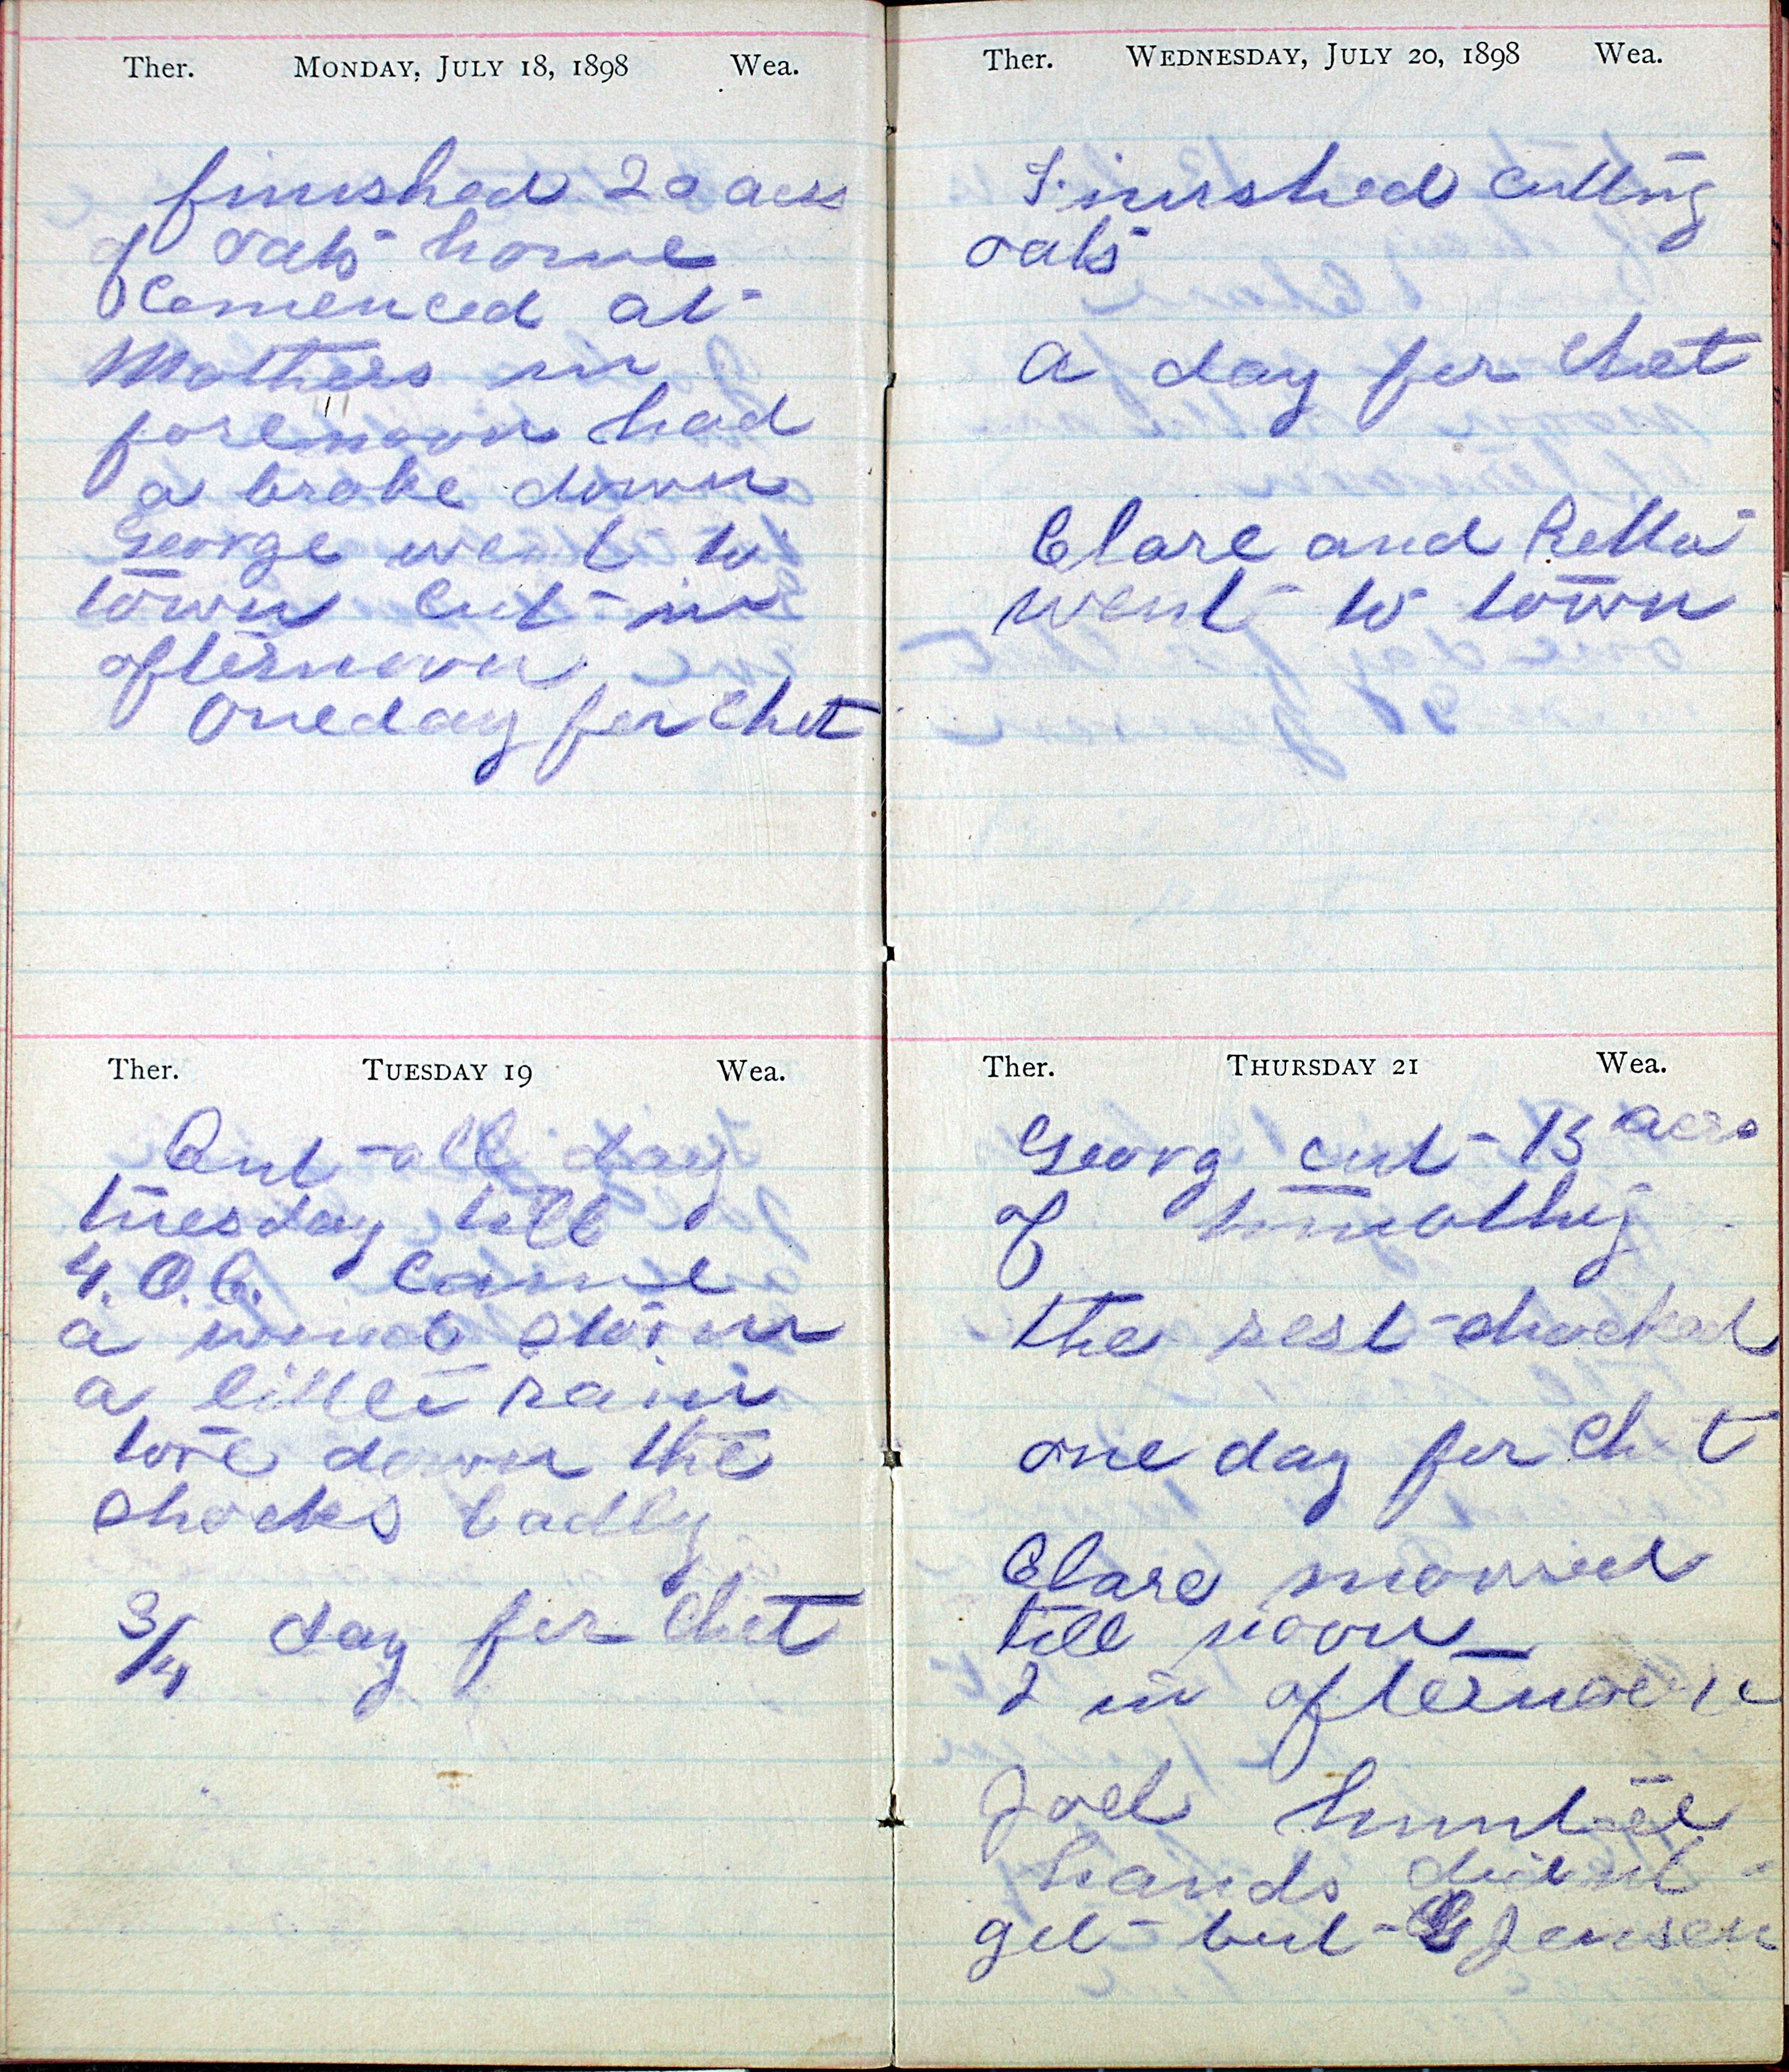 Ther. MONDAY, JULY 18, 1898 Wea.
finished 20 acrs
of oats home
Comenced at
Mothers in
forenoon had
a broke down
George went to
town Cut in
afternoon
One day for Chet
Ther. TUESDAY 19 Wea.
Cut all day
tuesday till
4. O.C. Came
a wind storm
a littel rain
tore down the
shocks badly
3/4 day for Chet
Ther. WEDNESDAY, JULY 20, 1898 Wea.
Finished cutting
oats
a day for Chet
Clare and Retta
went to town
Ther. THURSDAY 21 Wea.
Georg cut 15 acrs
of timothy
the rest shocked
one day for Chet
Clare mowed
till noon
I in afternoon
Joel hunted
hands didnt
get but G Jensen